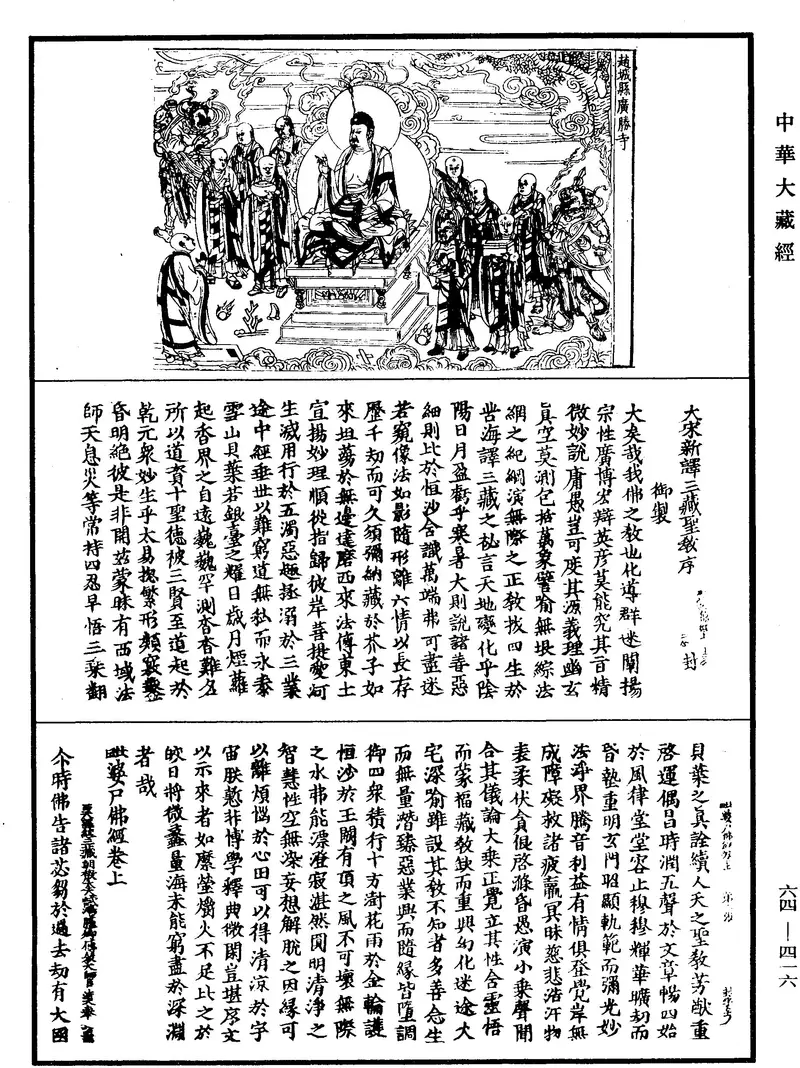 中華大藏經
趙城縣廣勝寺
大宋新譯三藏聖教序
御製
封
大矣哉我佛之教也化導群迷闡揚
宗性廣博宏辯英彦莫能究其旨精
微妙說庸愚豈可度其源義理幽玄
真空莫測包括萬象譬喻無垠綜法
網之紀綱演無際之正教拔四生於
苦海譯三藏之祕言天地變化乎陰
陽日月盈虧乎寒暑大則說諸善惡
細則比於恒沙含識萬端弗可盡述
若窺像法如影隨形離六情以長存
歷千劫而可久須彌納藏於芥子如
來坦蕩於無邊達磨西來法傳東土
宣揚妙理順從指歸彼岸菩提愛河
生滅用行於五濁惡趣拯溺於三業
途中經垂世以難窮道無私而永泰
雪山貝葉若銀臺之耀日歲月煙蘿
起香界之自遠巍巍罕測杳杳難名
所以道資十聖德被三賢至道起於
乾元衆妙生乎太易揔繁形類竅鑿
昏明絕彼是非開茲蒙昧有西域法
師天息災等常持四忍早悟三乘翻
貝葉之真詮續人天之聖教芳猷重
啓運偶昌時潤五聲於文章暢四始
於風律堂堂容止穆穆輝華曠劫而
昏墊重明玄門昭顯軌範而彌光妙
法淨界騰音利益有情俱登覺岸無
成障礙救諸疲羸冥昧慈悲浩汗物
表柔伏貪佷啓滌昏愚演小乘聲聞
合其儀論大乘正覺立其性含靈悟
而蒙福藏教缺而重興幻化迷途火
宅深喻雖設其教不知者多善念生
而無量潛臻惡業興而隨緣皆墮調
御四衆積行十方澍花雨於金輪護
恒沙於玉闕有頂之風不可壞無際
之水弗能漂澄寂湛然圓明清淨之
智慧性空無染妄想解脫之因緣可
以離煩惱於心田可以得清涼於宇
宙朕慙非博學釋典微閑豈堪序文
以示來者如麼螢爝火不足比之於
皎日將微蠡量海未能窮盡於深淵
者哉
毗婆尸佛經卷上
尒時佛告諸苾芻於過去劫有大國
六四—四一六